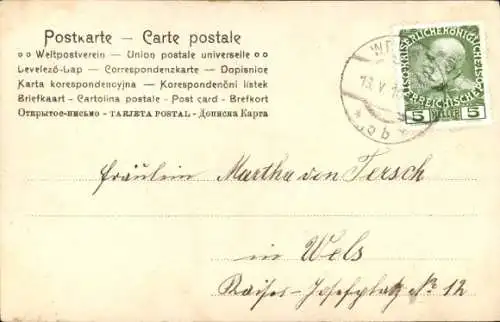 Postkarte — Carte postale
o o Weltpostverein — Union postale universelle o o
Levelező-Lap — Correspondenzkarte — Dopisnice
Karta korespondencyjna — Korespondenční lístek
Briefkaart - Cartolina postale - Post card - Brefkort
Открытое-письмо - TARJETA POSTAL - Дописна Карта
KAISERLICHE KÖNIGLICHE
ÖSTERREICHISCHE
5 HELLER 5
13. V.
* ob *
Fräulein Martha von Tersch
in Wels
Kaiser-Josefplatz No 12